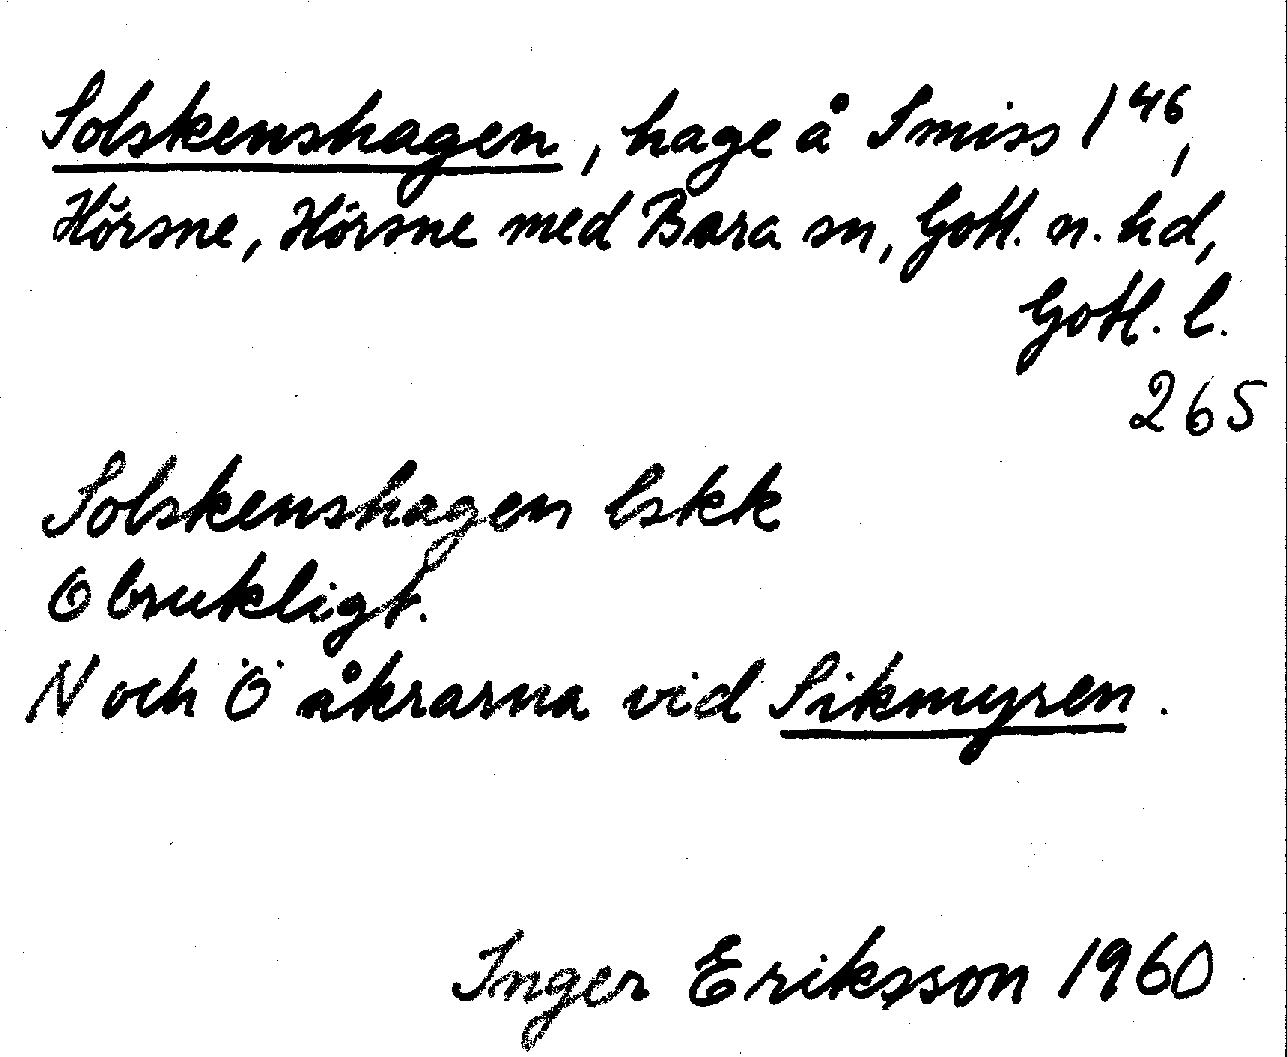 Solskenshagen, hage å Smiss 1⁴⁶,
Hörsne, Hörsne med Bara sn, Gotl. n. hd,
Gotl. l.
265
Solskenshagen lskk
Obrukligt.
N och Ö åkrarna vid Sikmyren.
Inger Eriksson 1960